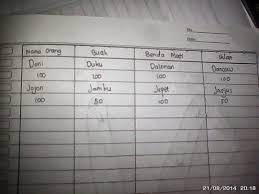 No.
Date.
Nama Orang Buah Benda Mati Iklan
Doni Duku Dalaman Dancow
100 100 100 100
Jojon Jambu Jepit Jasjus
100 50 100 50
21/08/2014 20:18